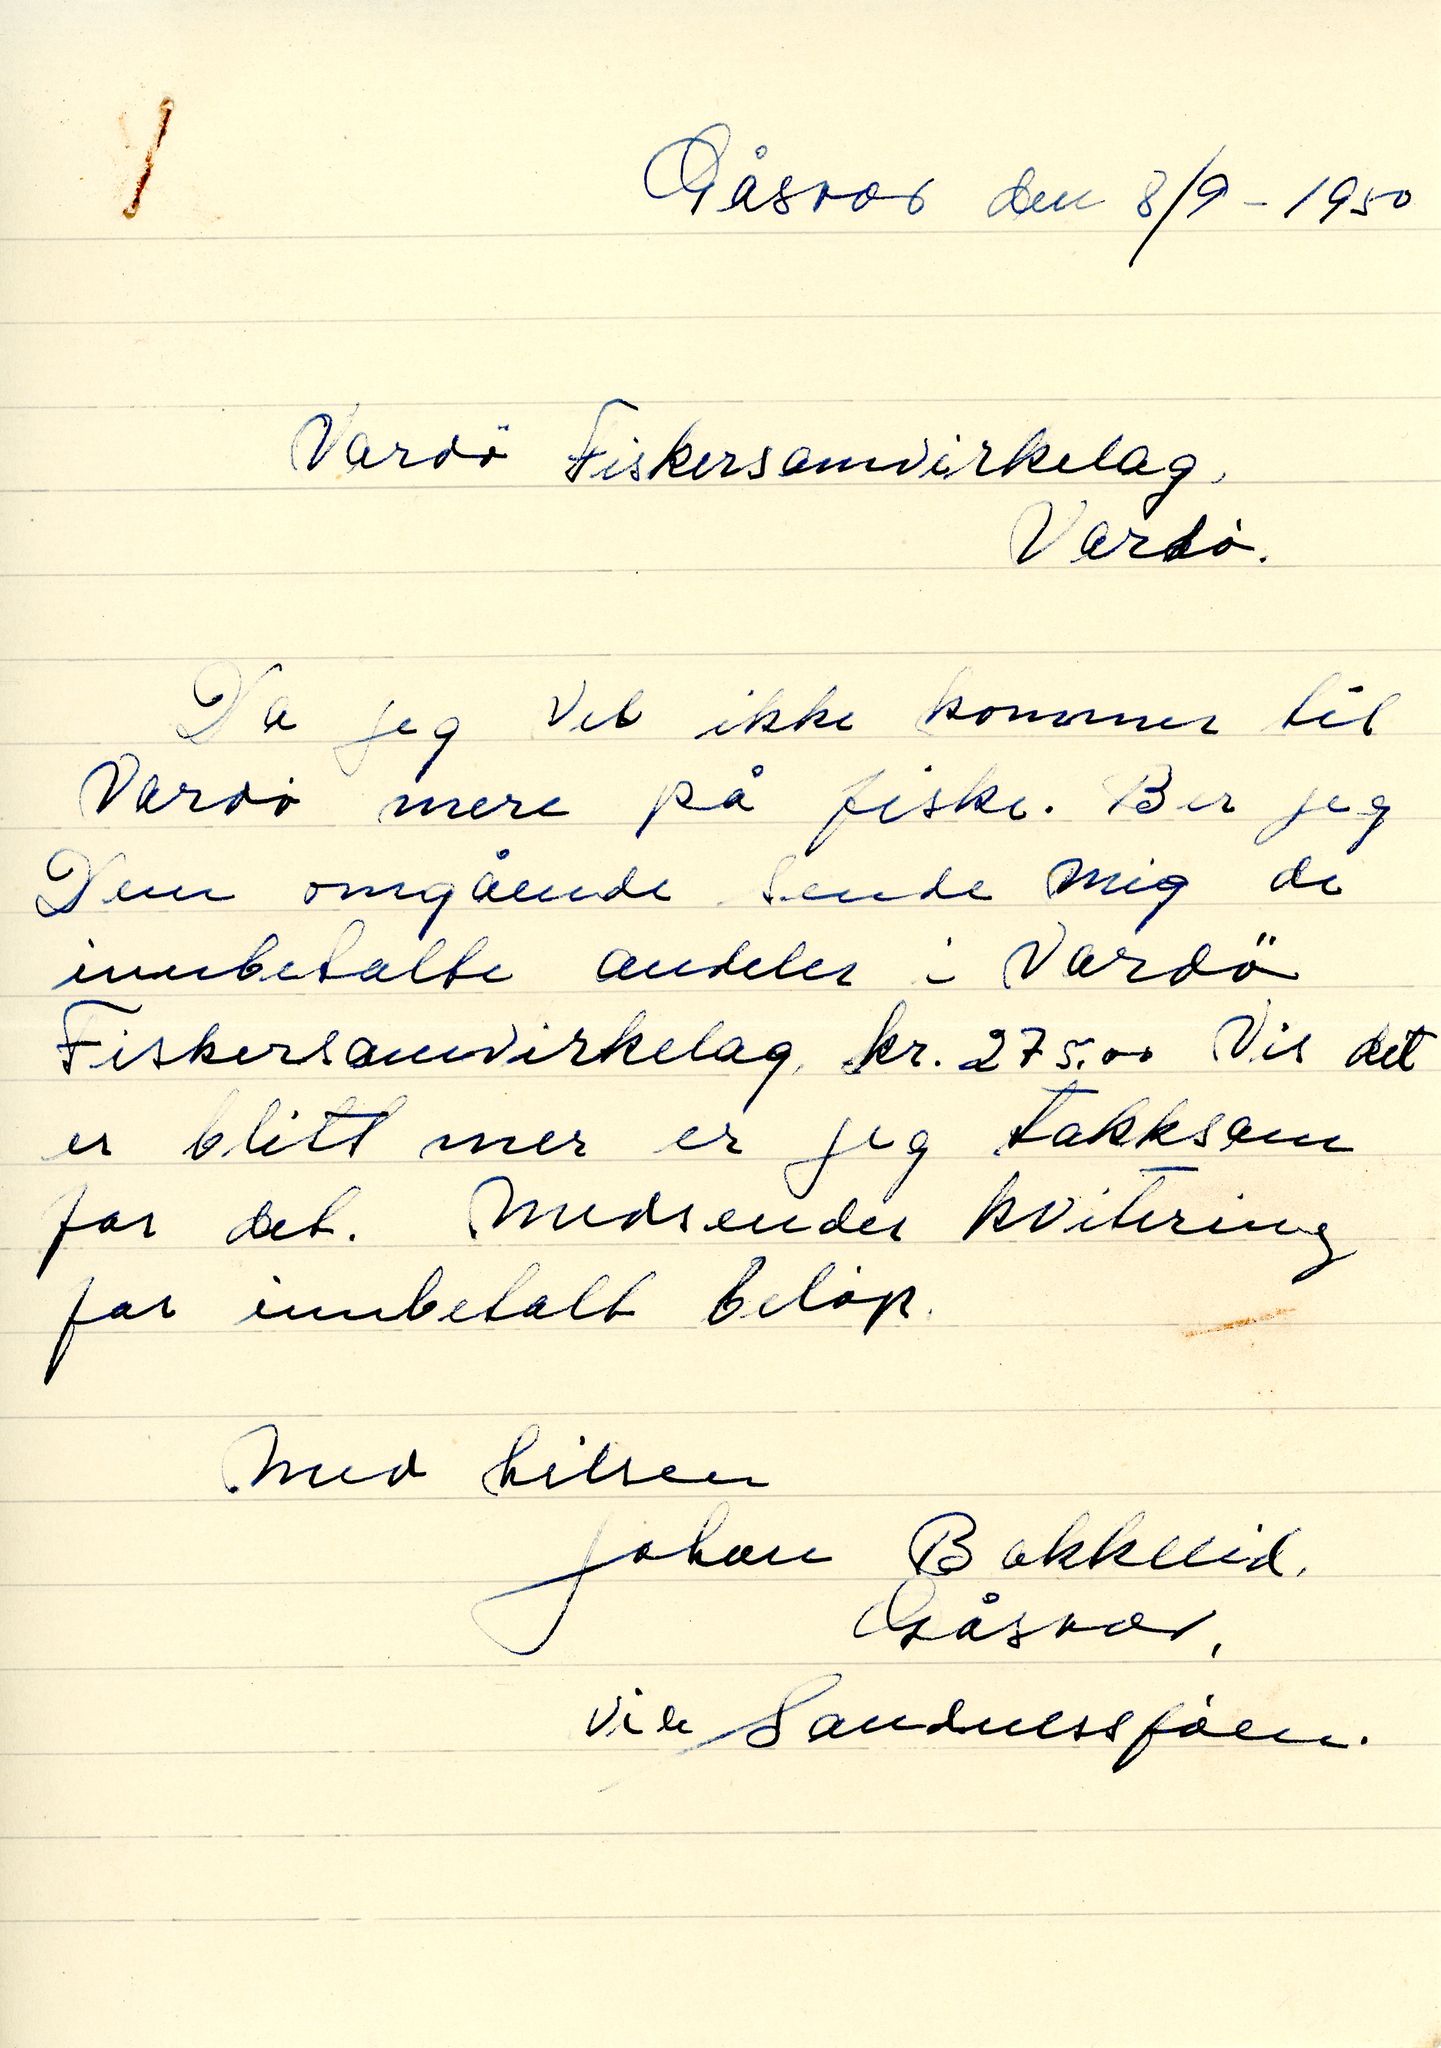 Gåsvær den 8/9 - 1950
Vardö Fiskersamvirkelag,
Vardö.
Da jeg vel ikke kommer til
Vardö mere på fiske. Ber jeg
Dem omgående sende mig de
innbetalte andeler i Vardö
Fiskersamvirkelag, kr. 275.00 Vis det
er blitt mer er jeg takksam
for det. Medsender kvitering
for innbetalt belöp.
Med hilsen
Johan Bakkeid,
Gåsvær,
via Sandnessjöen.